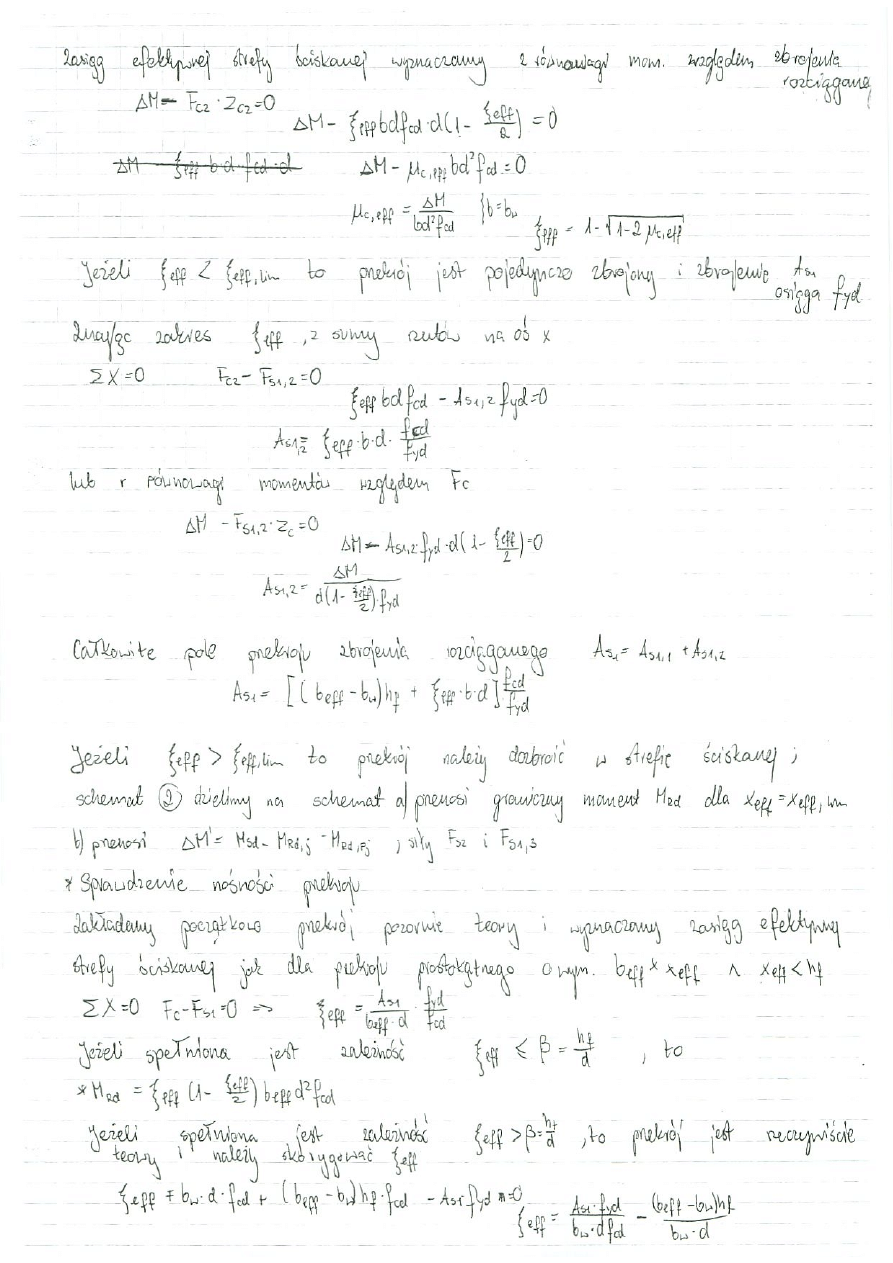 Zasięg efektywnej strefy ściskanej wyznaczamy z równowagi mom. względem zbrojenia rozciąganej
ΔM − Fc2 · Zc2 = 0
ΔM − ξeff b d fcd · d (1 − ξeff/2) = 0
ΔM − ξeff b·d·fcd·d
ΔM − μc,eff bd² fcd = 0
μc,eff = ΔM/(bd² fcd) {b = bw
ξeff = 1 − √(1 − 2 μc,eff)
Jeżeli ξeff < ξeff,lim to przekrój jest pojedynczo zbrojony i zbrojenie As1 osiąga fyd
Znając zakres ξeff , z sumy rzutów na oś x
ΣX = 0 Fc2 − Fs1,2 = 0
ξeff b d fcd − As1,2 fyd = 0
As1,2 = ξeff · b · d · fcd/fyd
lub r równowagi momentów względem Fc
ΔM − Fs1,2 · Zc = 0
ΔM − As1,2 · fyd · d (1 − ξeff/2) = 0
As1,2 = ΔM/(d(1 − ξeff/2) · fyd)
Całkowite pole przekroju zbrojenia rozciąganego As1 = As1,1 + As1,2
As1 = [(beff − bw) hf + ξeff · b · d] fcd/fyd
Jeżeli ξeff > ξeff,lim to przekrój należy dozbroić w strefie ściskanej ;
schemat ② dzielimy na schemat a) przenosi graniczny moment MRd dla xeff = xeff,lim
b) przenosi ΔM' = MSd − MRd,j − MRd,Fj , siły Fs2 i Fs1,3
* Sprawdzenie nośności przekroju
Zakładamy początkowo przekrój pozornie teowy i wyznaczamy zasięg efektywnej
strefy ściskanej jak dla przekroju prostokątnego o wym. beff x xeff ∧ xeff < hf
ΣX = 0 Fc − Fs1 = 0 => ξeff = As1/(beff · d) · fyd/fcd
Jeżeli spełniona jest zależność ξeff ≤ β = hf/d , to
* MRd = ξeff (1 − ξeff/2) beff d² fcd
Jeżeli spełniona jest zależność ξeff > β = hf/d , to przekrój jest rzeczywiście
teowy i należy skorygować ξeff
ξeff · bw · d · fcd + (beff − bw) hf · fcd − As1 fyd = 0
ξeff = As1 · fyd/(bw · d fcd) − (beff − bw) hf/(bw · d)